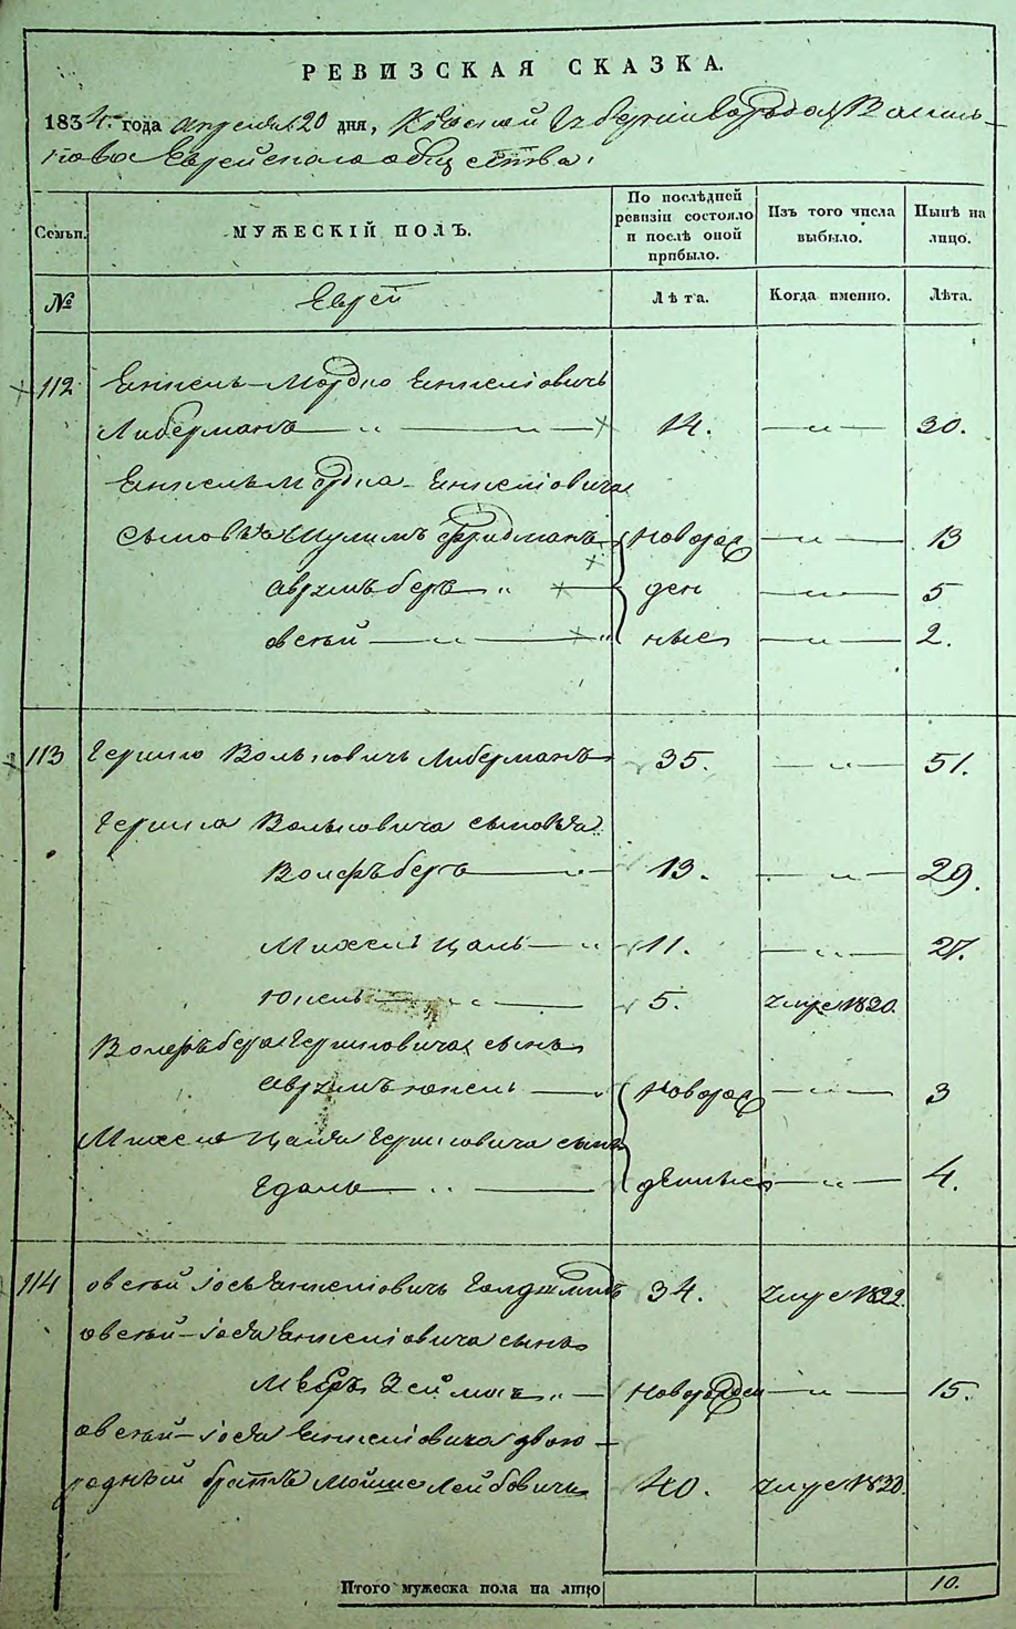 РЕВИЗСКАЯ СКАЗКА.
1834. года Апреля 20 дня, Кіевской Губерніи города Василь-
кова Еврейскаго общества.
Семьи. МУЖЕСКІЙ ПОЛЪ. По послѣдней ревизіи состояло и послѣ оной прибыло. Изъ того числа выбыло. Нынѣ на лицо.
№ Еврей Лѣта. Когда именно. Лѣта.
112 Енкель-Мордко Енкеліовичъ
Либерманъ — „ — „ — 14. — „ — 30.
Енкель Мордка Енкеліовича
сыновья Шулимъ Фридманъ Новорож — „ — 13
Аврумъ беръ „ — ден — „ — 5
Овсѣй — „ — „ ные — „ — 2.
113 Гершко Вольковичъ Либерманъ 35. — „ — 51.
Гершка Вольковича сыновья
Волфъ беръ — „ — 13. — „ — 29.
Михель Цаль — „ 11. — „ — 27.
Юкель — „ — 5. умре 1820.
Волфъ бера Гершковича сынъ
Аврумъ юкель — „ Новорож — „ — 3
Михель Цаля Гершковича сынъ
Едаль — „ — денные — „ — 4.
114 Овсѣй Іось Енкеліовичъ Голдшмитъ 34. умре 1822.
Овсѣй-Іося Енкеліовича сынъ
Меер Зейманъ „ — Новорожден — „ — 15.
Овсѣй-Іося Енкеліовича двою-
родный братъ Мойше Лейбовичъ 40. умре 1830.
Итого мужеска пола на лицо 10.